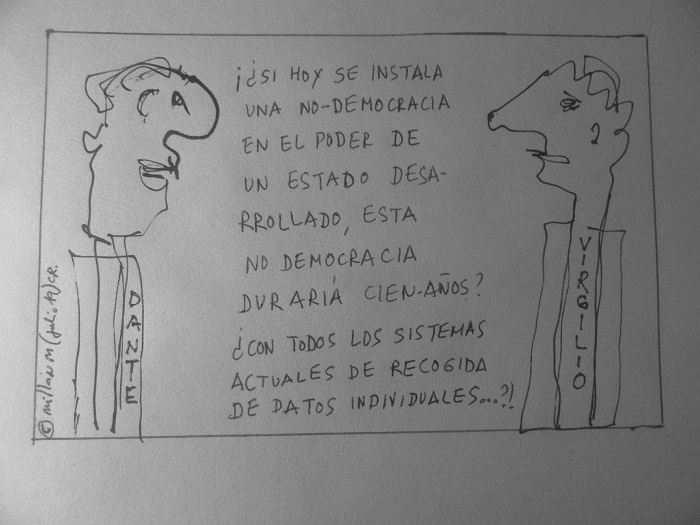 ¡¿SI HOY SE INSTALA
UNA NO-DEMOCRACIA
EN EL PODER DE
UN ESTADO DESA-
RROLLADO, ESTA
NO DEMOCRACIA
DURARIÁ CIEN-AÑOS?
¿CON TODOS LOS SISTEMAS
ACTUALES DE RECOGIDA
DE DATOS INDIVIDUALES...?!
DANTE
VIRGILIO
© millán M (julio 19) CR.